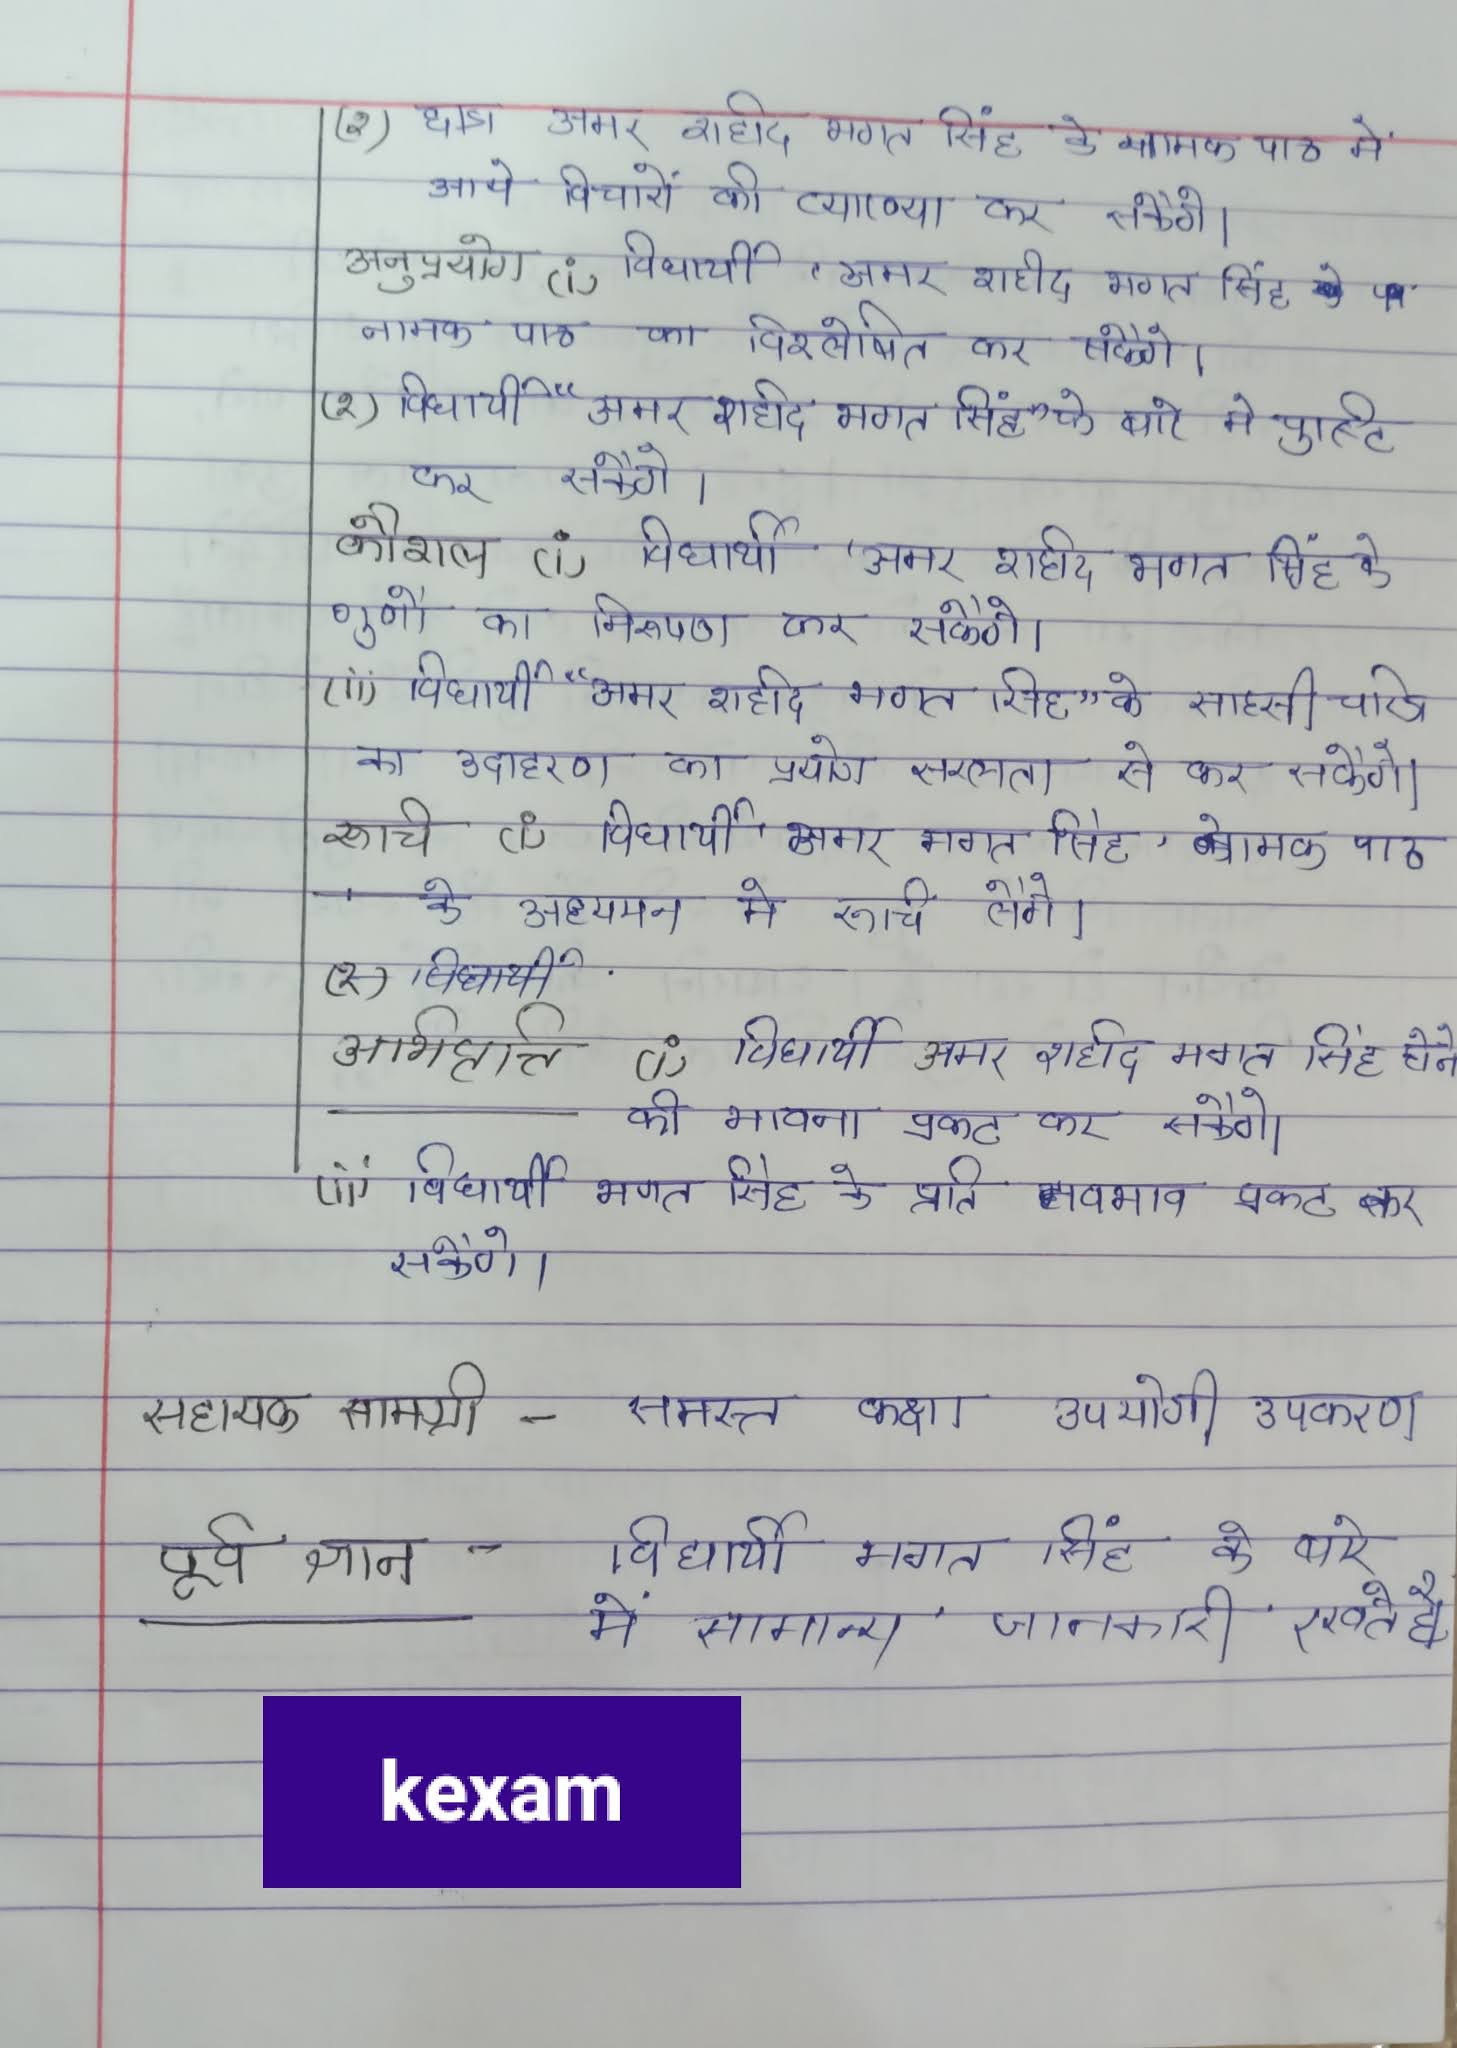 (२) छात्र अमर शहीद भगत सिंह के नामक पाठ में
आये विचारों की व्याख्या कर सकेंगे।
अनुप्रयोग (i) विद्यार्थी 'अमर शहीद भगत सिंह
नामक पाठ का विश्लेषित कर सकेंगे।
(२) विद्यार्थी "अमर शहीद भगत सिंह" के बारे मे पुष्टि
कर सकेंगे।
कौशल (i) विद्यार्थी 'अमर शहीद भगत सिंह के
गुणों का निरूपण कर सकेंगे।
(ii) विद्यार्थी "अमर शहीद भगत सिंह" के साहसी चरित्र
का उदाहरण का प्रयोग सरलता से कर सकेंगे।
रूचि (i) विद्यार्थी 'अमर भगत सिंह' नामक पाठ
के अध्ययन मे रूचि लेंगे।
(२) विद्यार्थी
अभिवृत्ति (i) विद्यार्थी अमर शहीद भगत सिंह होने
की भावना प्रकट कर सकेंगे।
(ii) विद्यार्थी भगत सिंह के प्रति प्रकट कर
सकेंगे।
सहायक सामग्री - समस्त कक्षा उपयोगी उपकरण
पूर्व ज्ञान - विद्यार्थी भगत सिंह के बारे
में सामान्य जानकारी रखते है
kexam